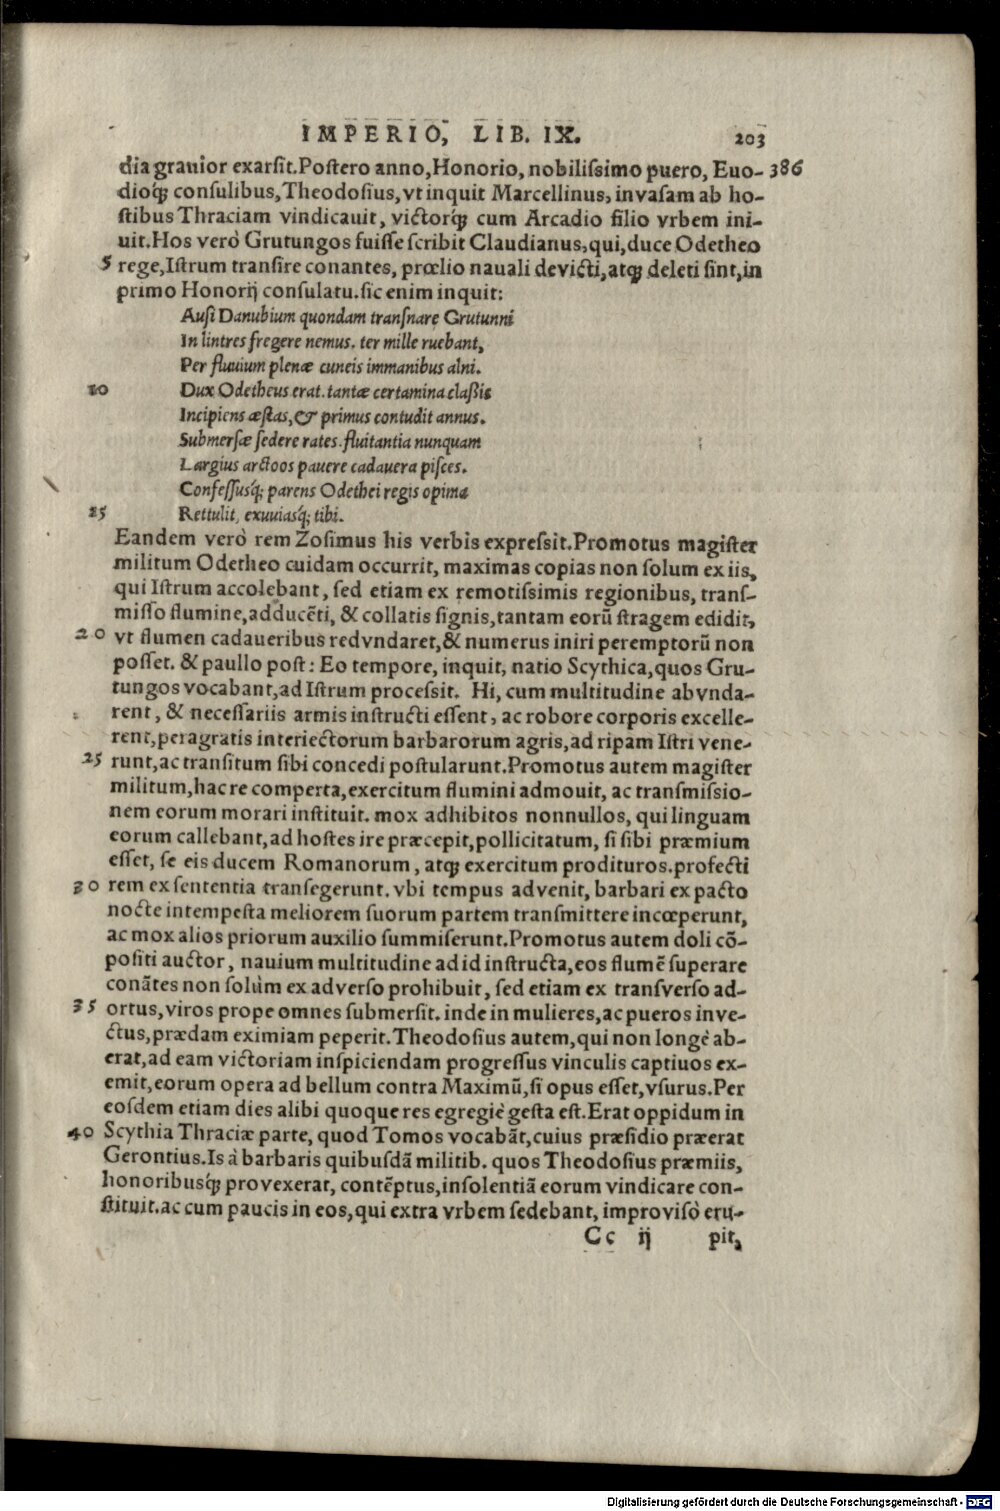 IMPERIO, LIB. IX. 203
dia grauior exarſit. Poſtero anno, Honorio, nobiliſsimo puero, Euo- 386
dioq́; conſulibus, Theodoſius, vt inquit Marcellinus, invaſam ab ho-
ſtibus Thraciam vindicauit, victorq́; cum Arcadio filio vrbem ini-
uit. Hos verò Grutungos fuiſſe ſcribit Claudianus, qui, duce Odetheo
5 rege, Iſtrum tranſire conantes, prœlio nauali devicti, atq; deleti ſint, in
primo Honorij conſulatu. ſic enim inquit:
Auſi Danubium quondam tranſnare Grutunni
In lintres fregere nemus. ter mille ruebant,
Per fluuium plenæ cuneis immanibus alni.
10 Dux Odetheus erat. tantæ certamina claßis
Incipiens æſtas, & primus contudit annus.
Submerſæ ſedere rates. fluitantia nunquam
Largius arctoos pauere cadauera piſces.
Confeſſusq́; parens Odethei regis opima
15 Rettulit, exuuiasq́; tibi.
Eandem verò rem Zoſimus his verbis expreſsit. Promotus magiſter
militum Odetheo cuidam occurrit, maximas copias non ſolum ex iis,
qui Iſtrum accolebant, ſed etiam ex remotiſsimis regionibus, tranſ-
miſſo flumine, adducēti, & collatis ſignis, tantam eorū ſtragem edidit,
20 vt flumen cadaueribus redvndaret, & numerus iniri peremptorū non
poſſet. & paullo poſt: Eo tempore, inquit, natio Scythica, quos Gru-
tungos vocabant, ad Iſtrum proceſsit. Hi, cum multitudine abvnda-
rent, & neceſſariis armis inſtructi eſſent, ac robore corporis excelle-
rent, peragratis interiectorum barbarorum agris, ad ripam Iſtri vene-
25 runt, ac tranſitum ſibi concedi poſtularunt. Promotus autem magiſter
militum, hac re comperta, exercitum flumini admouit, ac tranſmiſsio-
nem eorum morari inſtituit. mox adhibitos nonnullos, qui linguam
eorum callebant, ad hoſtes ire præcepit, pollicitatum, ſi ſibi præmium
eſſet, ſe eis ducem Romanorum, atq; exercitum prodituros. profecti
30 rem ex ſententia transegerunt. vbi tempus advenit, barbari ex pacto
nocte intempeſta meliorem ſuorum partem tranſmittere incœperunt,
ac mox alios priorum auxilio ſummiſerunt. Promotus autem doli cō-
poſiti auctor, nauium multitudine ad id inſtructa, eos flumē ſuperare
conātes non ſolùm ex adverſo prohibuit, ſed etiam ex tranſverſo ad-
35 ortus, viros prope omnes ſubmerſit. inde in mulieres, ac pueros inve-
ctus, prædam eximiam peperit. Theodoſius autem, qui non longè ab-
erat, ad eam victoriam inſpiciendam progreſſus vinculis captiuos ex-
emit, eorum opera ad bellum contra Maximū, ſi opus eſſet, vſurus. Per
eoſdem etiam dies alibi quoque res egregiè geſta eſt. Erat oppidum in
40 Scythia Thraciæ parte, quod Tomos vocabāt, cuius præſidio præerat
Gerontius. Is à barbaris quibuſdā militib. quos Theodoſius præmiis,
honoribusq́; provexerat, contēptus, inſolentiā eorum vindicare con-
ſtituit. ac cum paucis in eos, qui extra vrbem ſedebant, improviſò eru-
Cc ij pit,
Digitalisierung gefördert durch die Deutsche Forschungsgemeinschaft - DFG